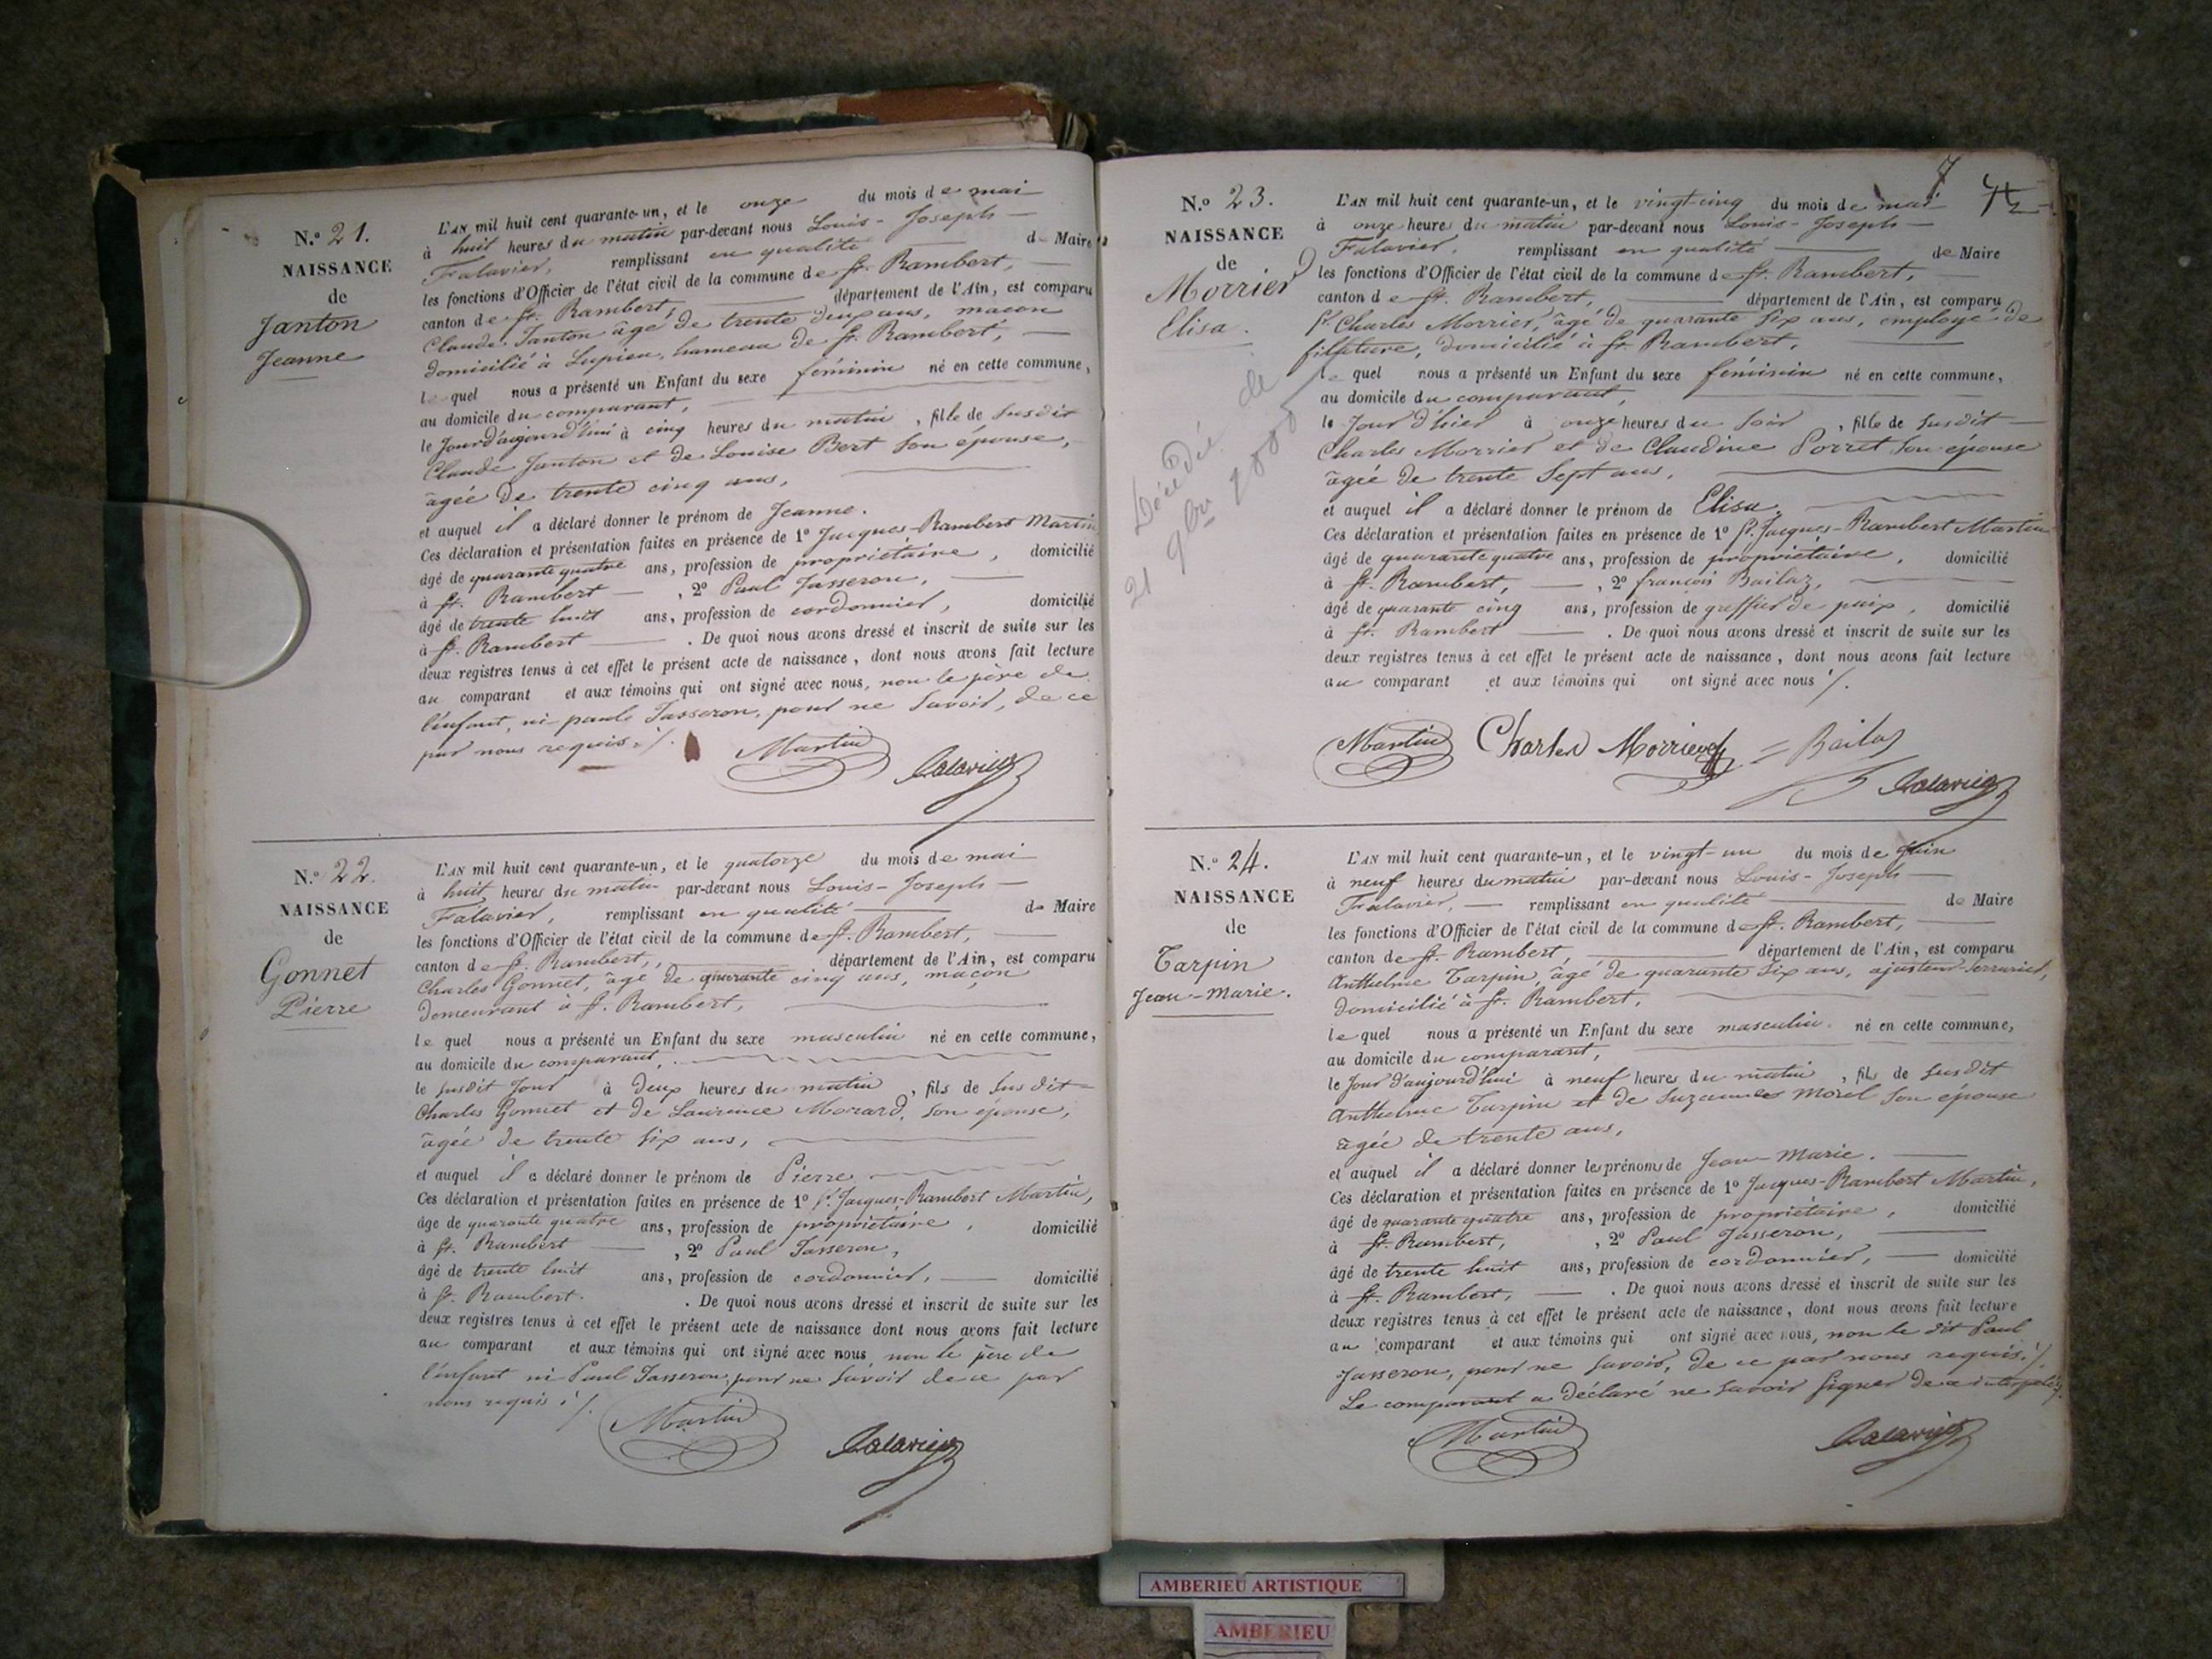 N.o 21.
NAISSANCE
de
Janton
Jeanne
L'AN mil huit cent quarante-un, et le onze du mois de mai
à huit heures du matin par-devant nous Louis-Joseph
Falavier, remplissant en qualité de Maire
les fonctions d'Officier de l'état civil de la commune de St. Rambert,
canton de St. Rambert, département de l'Ain, est comparu
Claude Janton âgé de trente deux ans, maçon
domicilié à Lupieu, hameau de St. Rambert,
lequel nous a présenté un Enfant du sexe féminin né en cette commune,
au domicile du comparant,
le Jourd'aujourd'hui à cinq heures du matin, fille de susdit
Claude Janton et de Louise Bert son épouse,
âgée de trente cinq ans,
et auquel il a déclaré donner le prénom de Jeanne.
Ces déclaration et présentation faites en présence de 1º Jacques-Rambert Martin
âgé de quarante quatre ans, profession de propriétaire, domicilié
à St. Rambert, 2º Paul Jasseron,
âgé de trente huit ans, profession de cordonnier, domicilié
à St. Rambert. De quoi nous avons dressé et inscrit de suite sur les
deux registres tenus à cet effet le présent acte de naissance, dont nous avons fait lecture
au comparant et aux témoins qui ont signé avec nous, non le père de
l'enfant, ni paul Jasseron, pour ne savoir, de ce
par nous requis ./.
Martin Falavier
N.o 22.
NAISSANCE
de
Gonnet
Pierre
L'AN mil huit cent quarante-un, et le quatorze du mois de mai
à huit heures du matin par-devant nous Louis-Joseph
Falavier, remplissant en qualité de Maire
les fonctions d'Officier de l'état civil de la commune de St. Rambert,
canton de St. Rambert, département de l'Ain, est comparu
Charles Gonnet, âgé de quarante cinq ans, maçon
demeurant à St. Rambert,
lequel nous a présenté un Enfant du sexe masculin né en cette commune,
au domicile du comparant,
le susdit Jour à deux heures du matin, fils de susdit
Charles Gonnet et de Laurence son épouse,
âgée de trente six ans,
et auquel il a déclaré donner le prénom de Pierre
Ces déclaration et présentation faites en présence de 1º Sr. Jacques-Rambert Martin,
âge de quarante quatre ans, profession de propriétaire, domicilié
à St. Rambert, 2º Paul Jasseron,
âgé de trente huit ans, profession de cordonnier, domicilié
à St. Rambert. De quoi nous avons dressé et inscrit de suite sur les
deux registres tenus à cet effet le présent acte de naissance dont nous avons fait lecture
au comparant et aux témoins qui ont signé avec nous non le père de
l'enfant ni Paul Jasseron, pour ne savoir de ce par
nous requis ./.
Martin Falavier
7
N.o 23.
NAISSANCE
de
Morrier
Elisa.
Décédée de
21 9bre
L'AN mil huit cent quarante-un, et le vingt-cinq du mois de mai
à onze heures du matin par-devant nous Louis-Joseph
Falavier, remplissant en qualité de Maire
les fonctions d'Officier de l'état civil de la commune de St. Rambert,
canton de St. Rambert, département de l'Ain, est comparu
Sr. Charles Morrier, âgé de quarante six ans, employé de
filature, domicilié à St. Rambert,
lequel nous a présenté un Enfant du sexe féminin né en cette commune,
au domicile du comparant,
le Jour d'hier à onze heures du soir, fille de susdit
Charles Morrier et de Claudine Porret son épouse
âgée de trente sept ans,
et auquel il a déclaré donner le prénom de Elisa.
Ces déclaration et présentation faites en présence de 1º Sr. Jacques-Rambert Martin
âgé de quarante quatre ans, profession de propriétaire, domicilié
à St. Rambert, 2º françois Bailaz,
âgé de quarante cinq ans, profession de greffier de paix, domicilié
à St. Rambert. De quoi nous avons dressé et inscrit de suite sur les
deux registres tenus à cet effet le présent acte de naissance, dont nous avons fait lecture
au comparant et aux témoins qui ont signé avec nous ./.
Martin Charles Morrier Bailaz
Falavier
N.o 24.
NAISSANCE
de
Tarpin
Jean-Marie.
L'AN mil huit cent quarante-un, et le vingt-un du mois de Juin
à neuf heures du matin par-devant nous Louis-Joseph
Falavier, remplissant en qualité de Maire
les fonctions d'Officier de l'état civil de la commune de St. Rambert,
canton de St. Rambert, département de l'Ain, est comparu
Anthelme Tarpin, âgé de quarante six ans, ajusteur serrurier,
domicilié à St. Rambert,
lequel nous a présenté un Enfant du sexe masculin né en cette commune,
au domicile du comparant,
le Jour d'aujourd'hui à neuf heures du matin, fils de susdit
Anthelme Tarpin et de Suzanne Morel son épouse
âgée de trente ans,
et auquel il a déclaré donner les prénoms de Jean-Marie.
Ces déclaration et présentation faites en présence de 1º Jacques-Rambert Martin,
âgé de quarante quatre ans, profession de propriétaire, domicilié
à St. Rambert, 2º Paul Jasseron,
âgé de trente huit ans, profession de cordonnier, domicilié
à St. Rambert, . De quoi nous avons dressé et inscrit de suite sur les
deux registres tenus à cet effet le présent acte de naissance, dont nous avons fait lecture
au comparant et aux témoins qui ont signé avec nous, non le dit Paul
Jasseron, pour ne savoir, de ce par nous requis ./.
Le comparant a déclaré ne savoir signer de ce interpellé.
Martin Falavier
AMBERIEU ARTISTIQUE
AMBERIEU